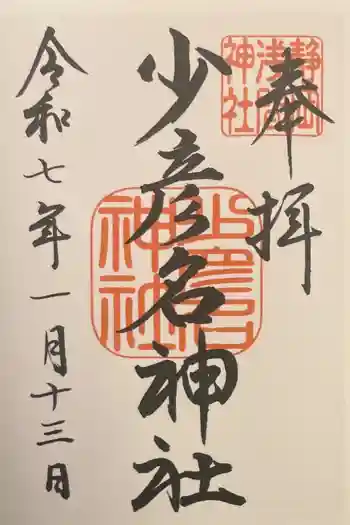 奉拝
静岡浅間神社
少彦名神社
少彦名神社
令和七年一月十三日